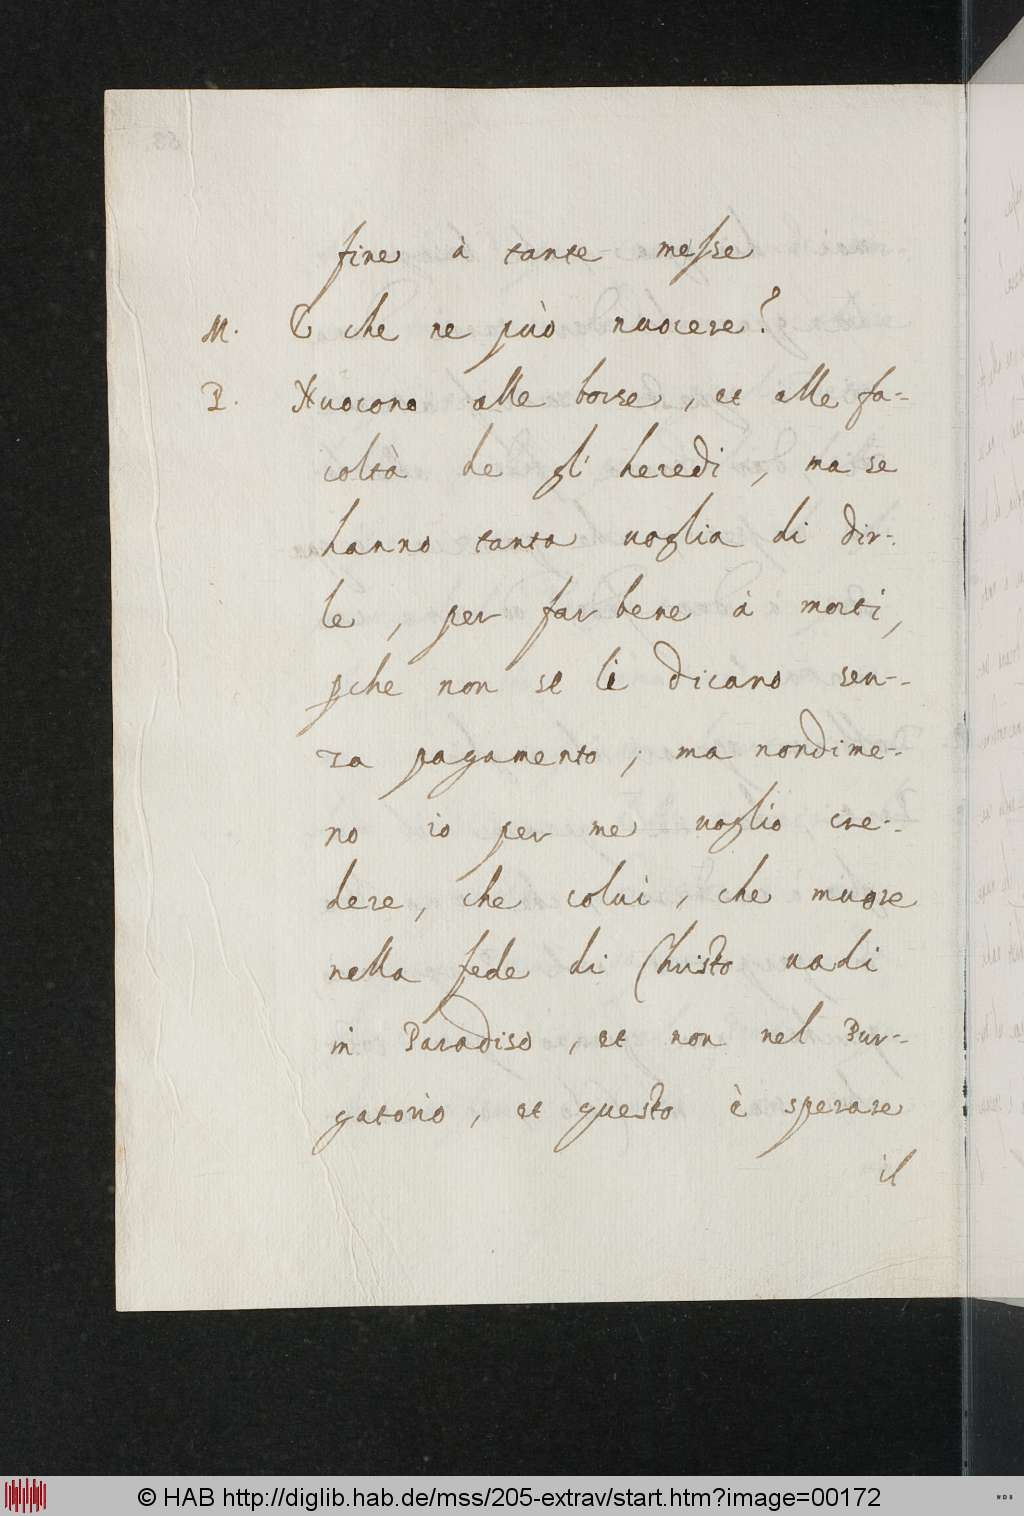 fine à tante messe
M. E che ne può nuocere?
P. Nuocono alle borse, et alle fa-
coltà de gli heredi, ma se
hanno tanta uoglia di dir-
le, per far bene à morti,
pche non se li dicano sen-
za pagamento; ma nondime-
no io per me uoglio cre-
dere, che colui, che muore
nella fede di Christo uadi
in Paradiso, et non nel Pur-
gatorio, et questo è sperare
il
© HAB http://diglib.hab.de/mss/205-extrav/start.htm?image=00172